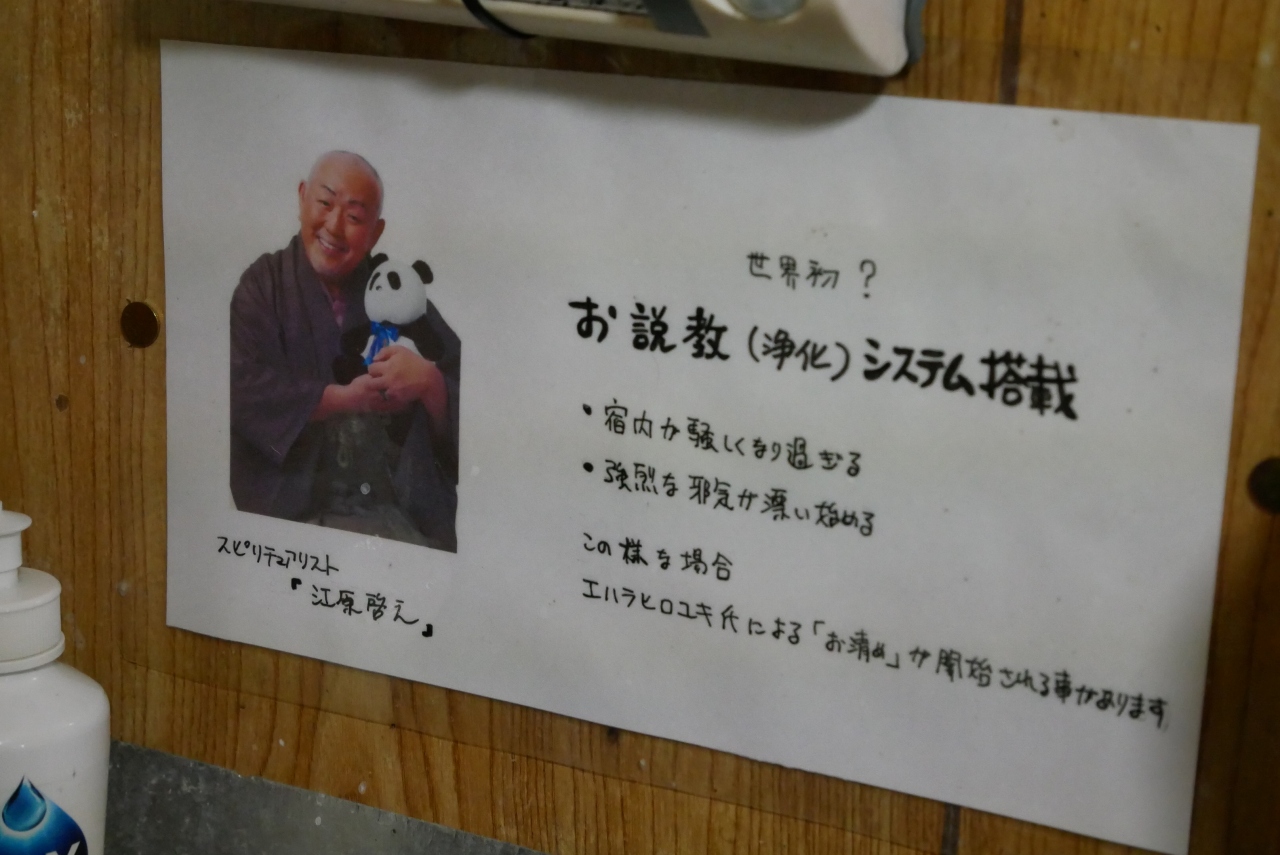 世界初 ?
お説教 (浄化) システム搭載
・宿内が騒しくなり過ぎる
・強烈な邪気が漂い始める
この様な場合
エハラヒロユキ氏による「お清め」が開始される事があります
スピリチュアリスト
『江原啓之』